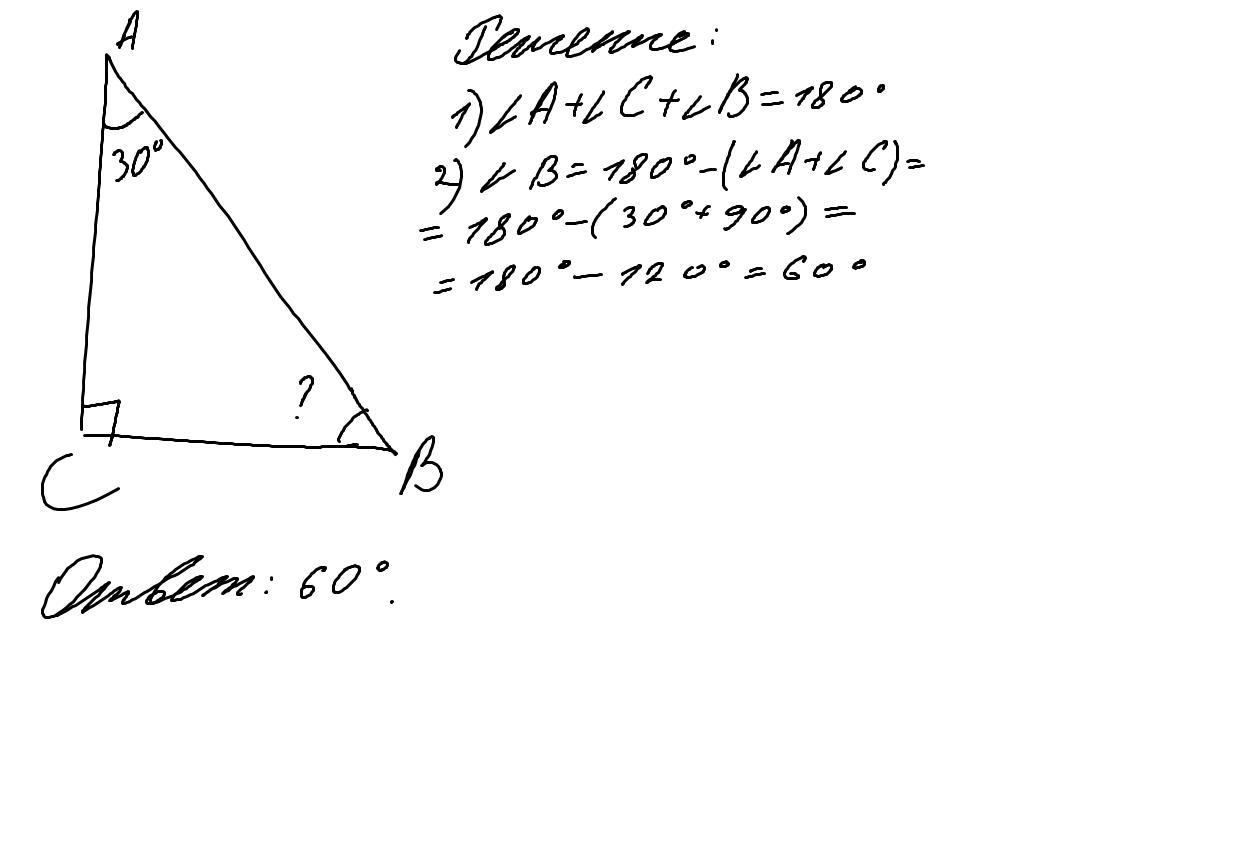 A
30°
?
C
B
Решение:
1) ∠A+∠C+∠B=180°
2) ∠B=180°-(∠A+∠C)=
=180°-(30°+90°)=
=180°-120°=60°
Ответ: 60°.